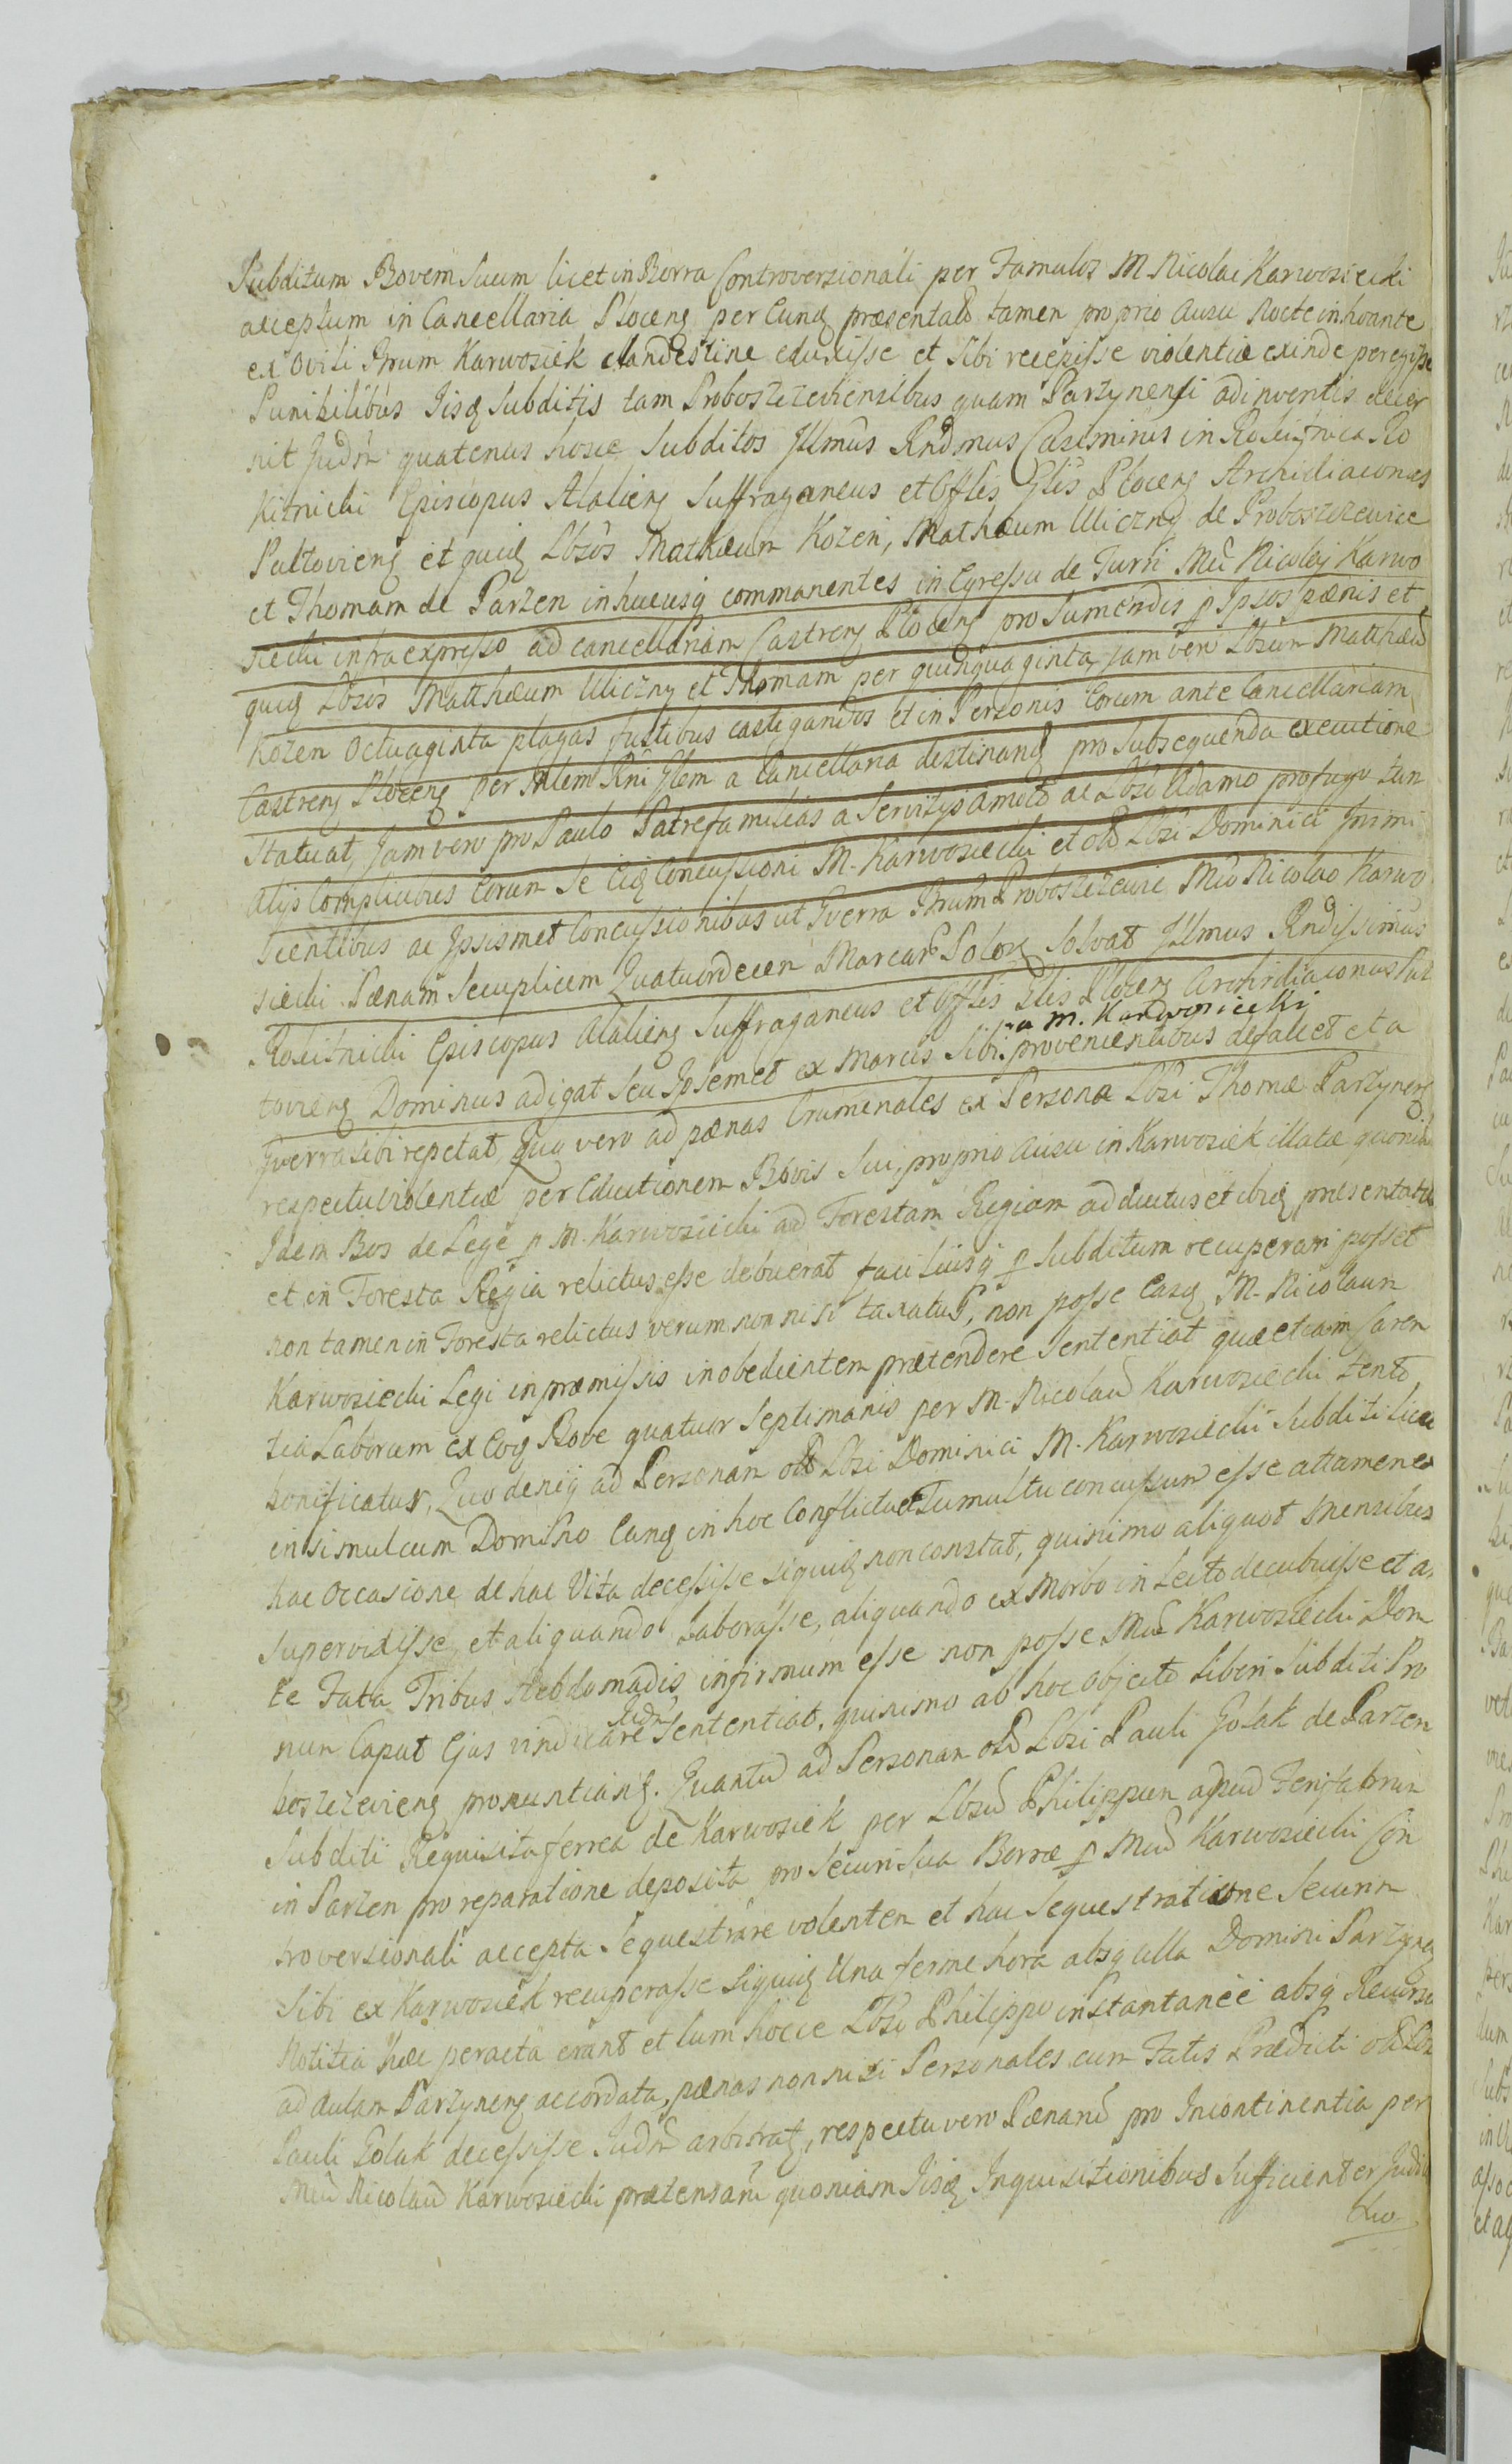 Subditum Bovem Suum licet in Borra Controversionali per Famulos M Nicolai Karwosiecki
acceptum in Cancellaria Plocens per Eunds præsentatũ tamen proprio Ausu Nocte inhoante
ex Ovili Brum Karwosiek clandestine eduxisse et Sibi recepisse violentiæ exinde peregisse
Punibilibus Iisq Subditis tam Proboszczeviensibus quam Parzynensi adinventis decer
nit Judm quatenus hosce Subditos Illmus Rndmus Casimirus in Rościſzew Ro
kitnicki Episcopus Alaliens Suffraganeus et Offlis Glis Plocens Archidiaconus
Pultoviens et quid Lbsos Matthæum Kozen, Mathæum Uliczny de Proboszczewice
et Thomam de Parzen inhucusq commanentes in Egressu de Turri Md Nicolai Karwo
siecki infra expresso ad cancellariam Castrens Plocens pro Sumendis p Ipsos pænis et
quid Lbsos Matthæum Uliczny et Thomam per quinquaginta, jam vero Lbsum Matthæũ
Kozen Octuaginta plagas fustibus castigandos et in Personis Eorum ante Cancellariam
Castrens Plocens per Mlem Rni Glem a Cancellaria destinand pro Subsequenda executione
Statuat, Jam vero pro Paulo Patrefamilias a Servitys amoto ac Lbso Adamo profugo tan
Alys Complicibus Eorum Se Eid Concussioni M. Karwosiecki et olĩ Lbsi Dominici Immi
scientibus ac Ipsismet Concussionibus ut Gverra Brum Proboszczewic Mdo Nicolao Karwo
siecki Pænam Secuplicem Quatuordecem Marcarũ Polon Solvat Illmus Rndissimus
Rokitnicki Episcopus Alaliens Suffraganeus et Offlis Glis Plocens Archidiaconus Pul
toviens Dominus adigat Seu Ipsemet ex Marcis Sibi a M. Karwosiecki provenientibus defalcet et a
Gverra Sibi repetat, Quo vero ad pænas Crumenales ex Persona Lbsi Thomæ Parzynens
respectu violentiæ per Eductionem Bovis Sui, proprio Ausu in Karwosiek illatæ quoniã
Idem Bos de Lege p M. Karwosiecki ad Forestam Regiam adductus et ibid præsentatus
et in Foresta Regia relictus esse debuerat faciliusq p Subditum recuperari posset
non tamen in Foresta relictus verum non nisi taxatus, non posse Easd M. Nicolaum
Karwosiecki Legi in præmissis inobedientem prætendere Sententiat quæ etiam Caren
tia Laborum ex Eod Bove quatuor Septimanis per M. Nicolaũ Karwosiecki tento,
bonificatur, Quo deniq ad Personam olĩ Lbsi Dominici M. Karwosiecki Subditi licet
in simul cum Domino Eund in hoc Conflictu et Tumultu concussum esse attamen ex
hac Occasione de hac Vita decessisse siquid non constat, quinimo aliquot Mensibus
supervixisse, et aliquando Laborasse, aliquando ex Morbo in Lecto decubuisse et an
te Fata Tribus Hebdomadis infirmum esse non posse Mdũ Karwosiecki Dom
num Caput Ejus vindicare Judm Sententiat, quinimo ab hoc objecto liberi Subditi Pro
boszczeviens pronuntiand. Quantũ ad Personam olĩ Lbsi Pauli Golak de Parzen
Subditi Requisita ferrea de Karwosiek per Lbsũ Philippum apud Ferrifabrum
in Parzen pro reparatione deposita pro Securi Sua Borræ p Mdũ Karwosiecki Con
troversionali accepta Sequestrare volentem et hac Sequestratione Securim
Sibi ex Karwosiek recuperasse siquid Una ferme hora absq ulla Domini Parzynens
Notitia hæc peracta erant et tum hocce Lbso Philippo instantanee absq Recursu
ad Aulam Parzynens accordata, pænas non nisi Personales cum Fatis Prædicti olĩ Lbsi
Pauli Golak decessisse Judm arbitrat, respectu vero Pænarũ pro Incontinentia per
Mdũ Nicolaũ Karwosiecki prætensarũ quoniam Iisd Inquisitionibus Sufficienter Judi